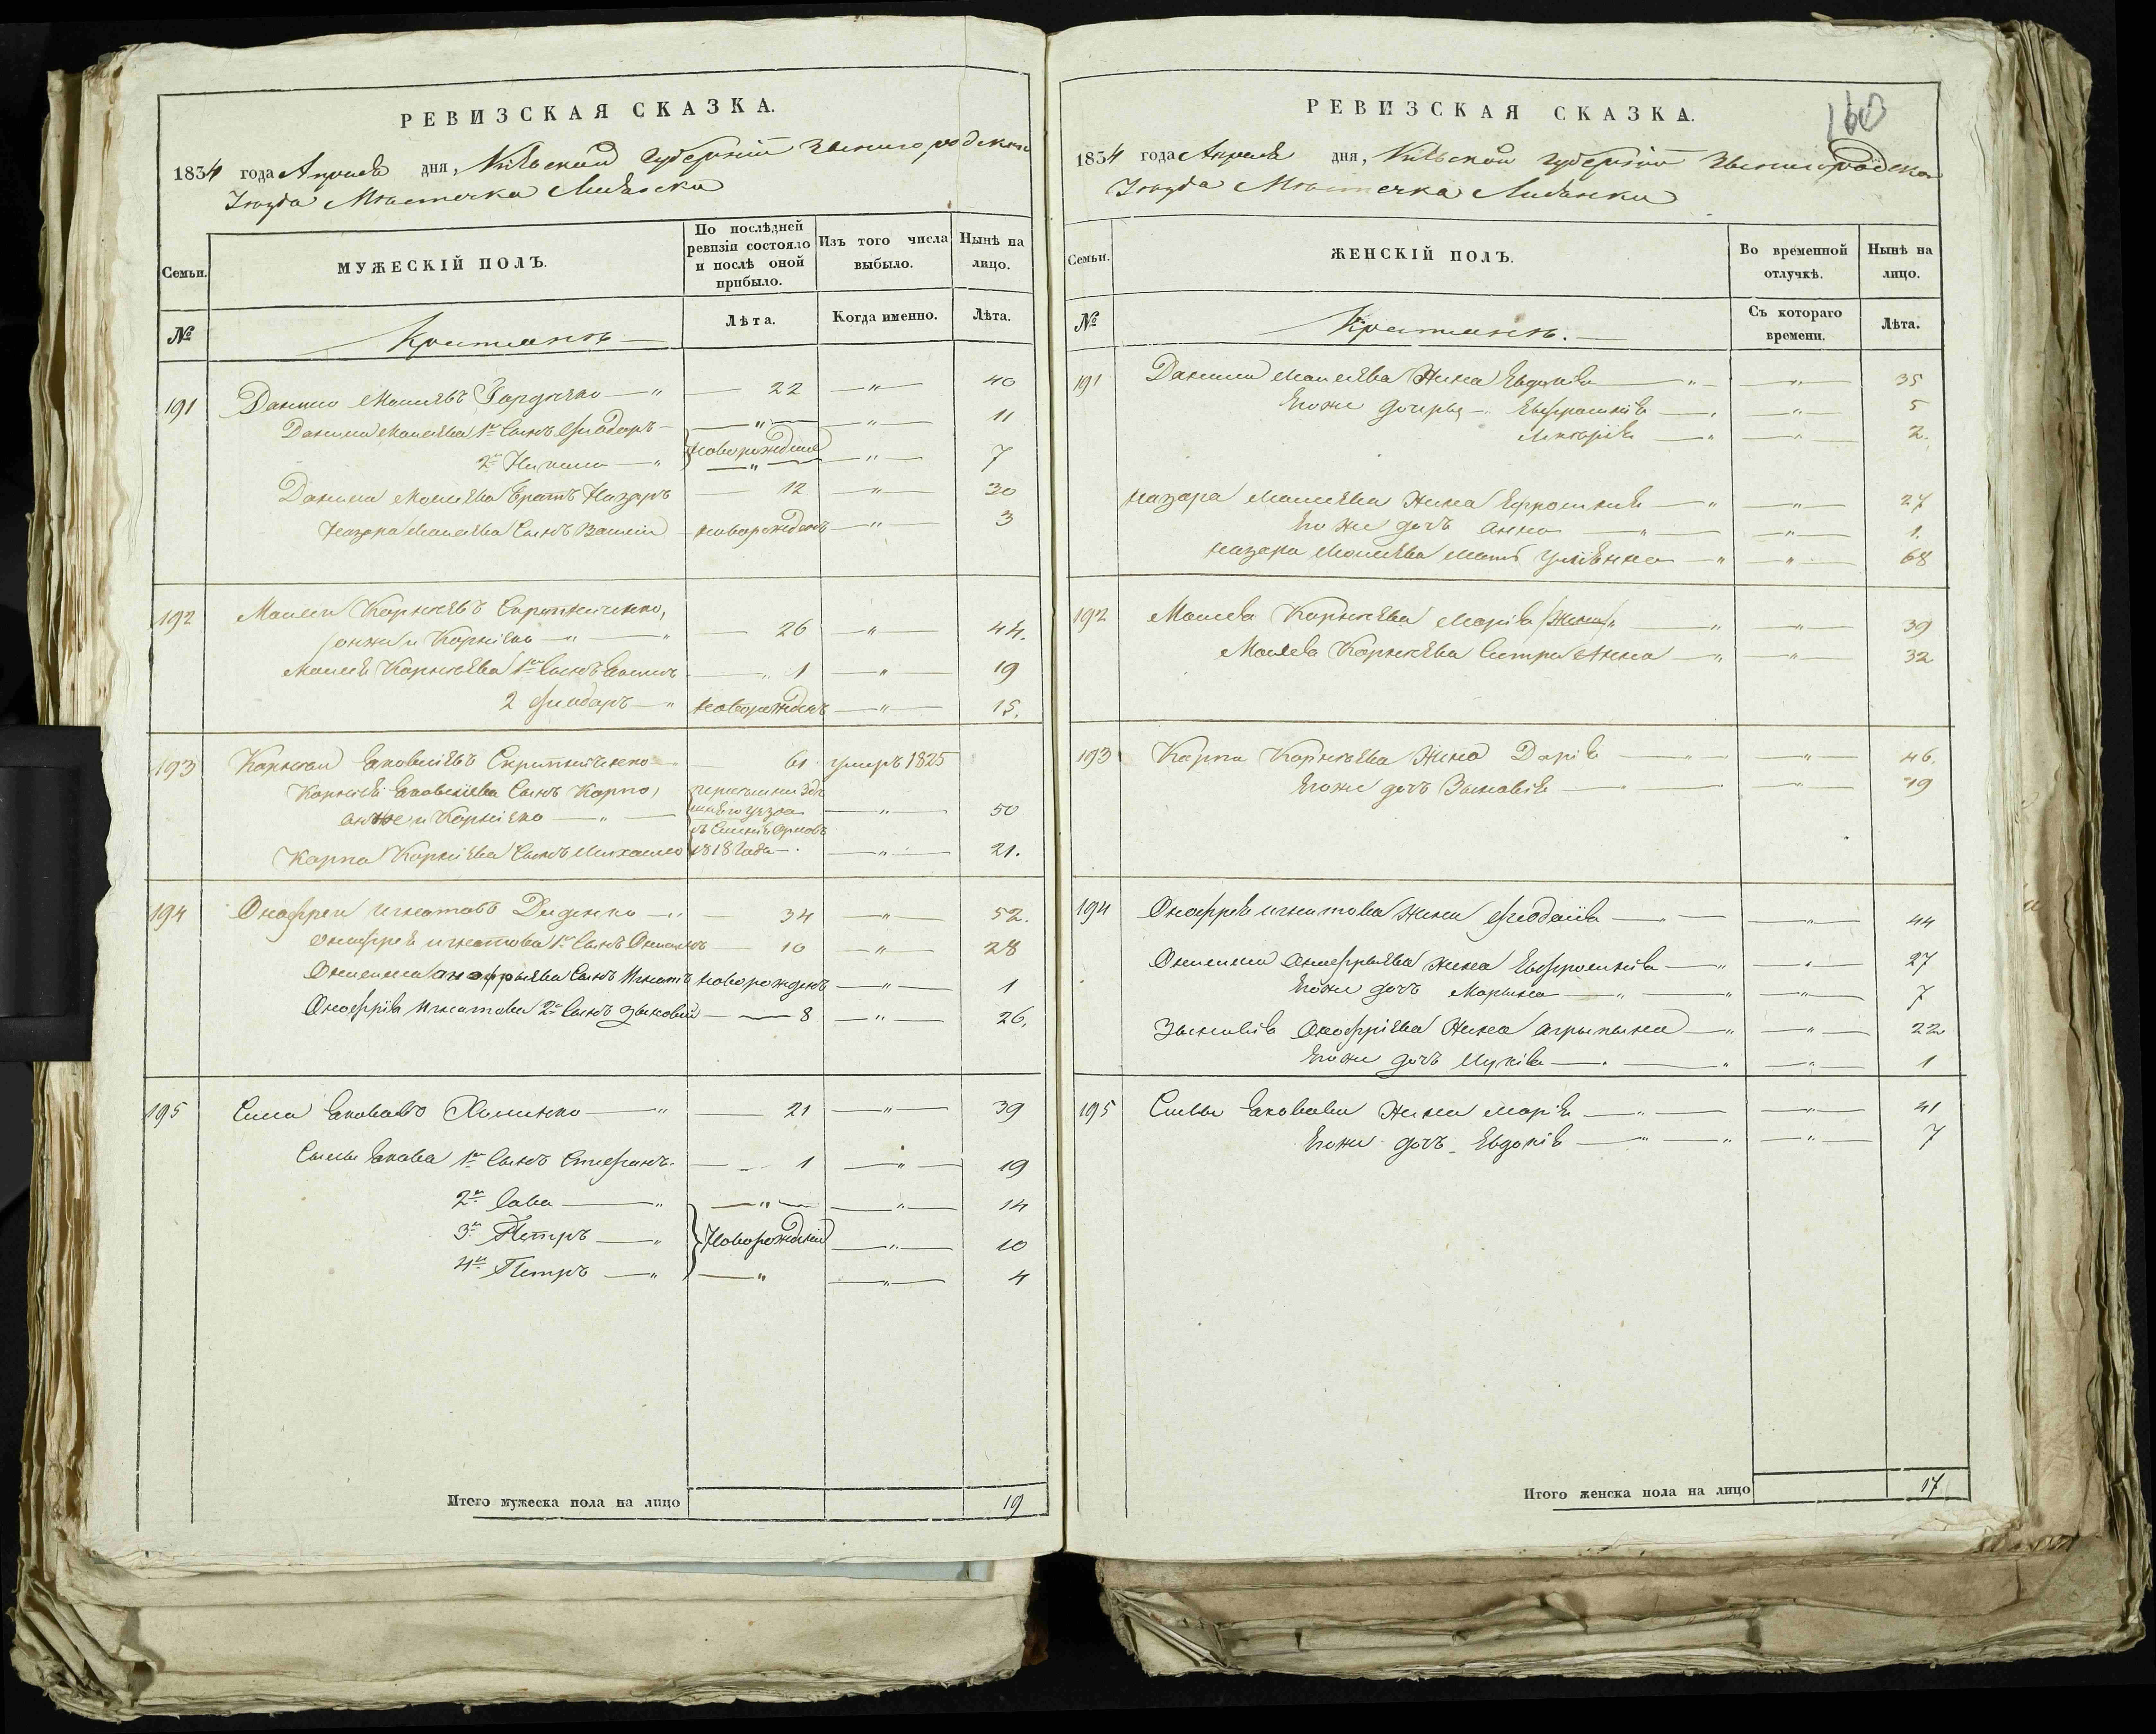 РЕВИЗСКАЯ СКАЗКА.
1834 года Апреля дня, Кіевской Губерніи Звенигородскаго
Уезда Местечка Лисянки
Семьи.
МУЖЕСКІЙ ПОЛЪ.
По послѣдней ревизіи состояло и послѣ оной прибыло.
Изъ того числа выбыло.
Нынѣ на лицо.
№
Крестьянъ
Лѣта.
Когда именно.
Лѣта.
191 Данило Моисѣевъ 22 40
Данила Моисѣева 1й Сынъ Фиодоръ 11
2й новорождены 7
Данила Моисѣева братъ Назаръ 12 30
Назара Моисѣева Сынъ Василій новорожденъ 3
192 Моисей Корнѣевъ
онже и Корніенко 26 44.
Моисея Корнѣева 1й Сынъ 1 19
2 Фиодоръ новорожденъ 15.
193 Корней Яковлѣвъ Скрипниченко 61 умеръ 1825
Корнія Яковлева Сынъ Карпо,
онже и Корніенко 50
Карпа Корніева Сынъ Михайло 1818 Года 21.
194 Онофрей Игнатовъ Диденко 34 52.
Онофрея Игнатова 1й Сынъ 10 28
Онофрыева Сынъ Игнатъ новорожденъ 1
Онофрія Игнатова 2й Сынъ Зыновий 8 26.
195 Сила Яковлевъ 21 39
Силы Якова 1й Сынъ Стефанъ 1 19
2й Сава 14
3й Петръ Новорождены 10
4й Петръ 4
Итого мужеска пола на лицо 19
РЕВИЗСКАЯ СКАЗКА.
160
1834 года Апреля дня, Кіевской Губерніи Звенигородскаго
Уезда Местечка Лисянки
Семьи.
ЖЕНСКІЙ ПОЛЪ.
Во временной отлучкѣ.
Нынѣ на лицо.
№
Крестьянъ.
Съ котораго времени.
Лѣта.
191 Данила Моисѣева Жена Евдокія 35
Егоже дочеры Евфросинія 5
2.
Назара Моисѣева Жена Ефросинія 27
Егоже дочъ Анна 1.
Назара Моисѣева Мать Ульянна 68
192 Моисея Корнѣева Марія Жена 39
Моисея Корнѣева Сестра Анна 32
193 Карпа Корнѣева Жена Дарія 46.
Егоже дочъ Зыновія 19
194 Онофрія Игнатова Жена Феодосія 44
Онофрыева Жена Евфросинія 27
Егоже дочъ Марына 7
Зыновія Онофріева Жена Агрыпына 22
Егоже дочъ Лукія 1
195 Силы Яковлева Жена Марія 41
Егоже дочъ Евдокія 7
Итого женска пола на лицо 17